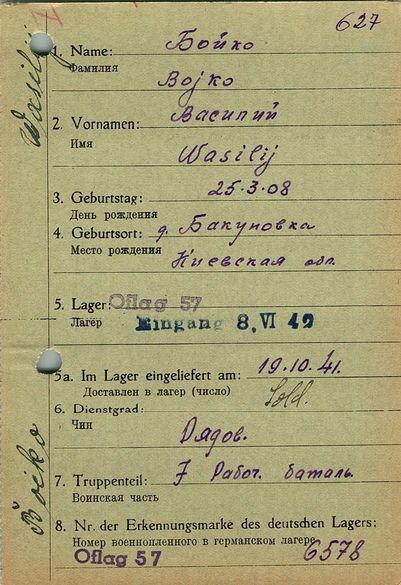 627
Wasilij
1. Name: Бойко
Фамилия
Bojko
2. Vornamen: Василий
Имя
Wasilij
3. Geburtstag: 25.3.08
День рождения
4. Geburtsort: д. Бакуновка
Место рождения
Киевская обл.
5. Lager: Oflag 57
Лагер Eingang 8. VI 42
5a. Im Lager eingeliefert am: 19.10.41.
Доставлен в лагер (число) Sold.
6. Dienstgrad:
Чин Рядов.
7. Truppenteil: 7 Рабоч. баталь.
Воинская часть
Boiko
8. Nr. der Erkennungsmarke des deutschen Lagers:
Номер военнопленного в германском лагере 6578
Oflag 57